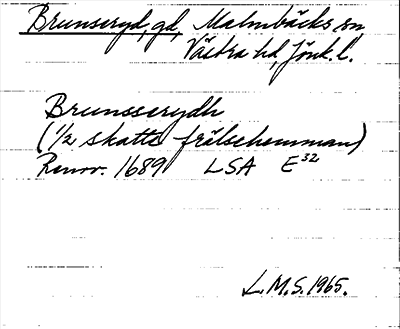 Brunseryd, gd, Malmbäcks sn
Västra hd, Jönk. l.
Brunsserydh
(1/2 skatte frälsehemman)
Renov. 1689 LSA E³²
L.M.S. 1965.